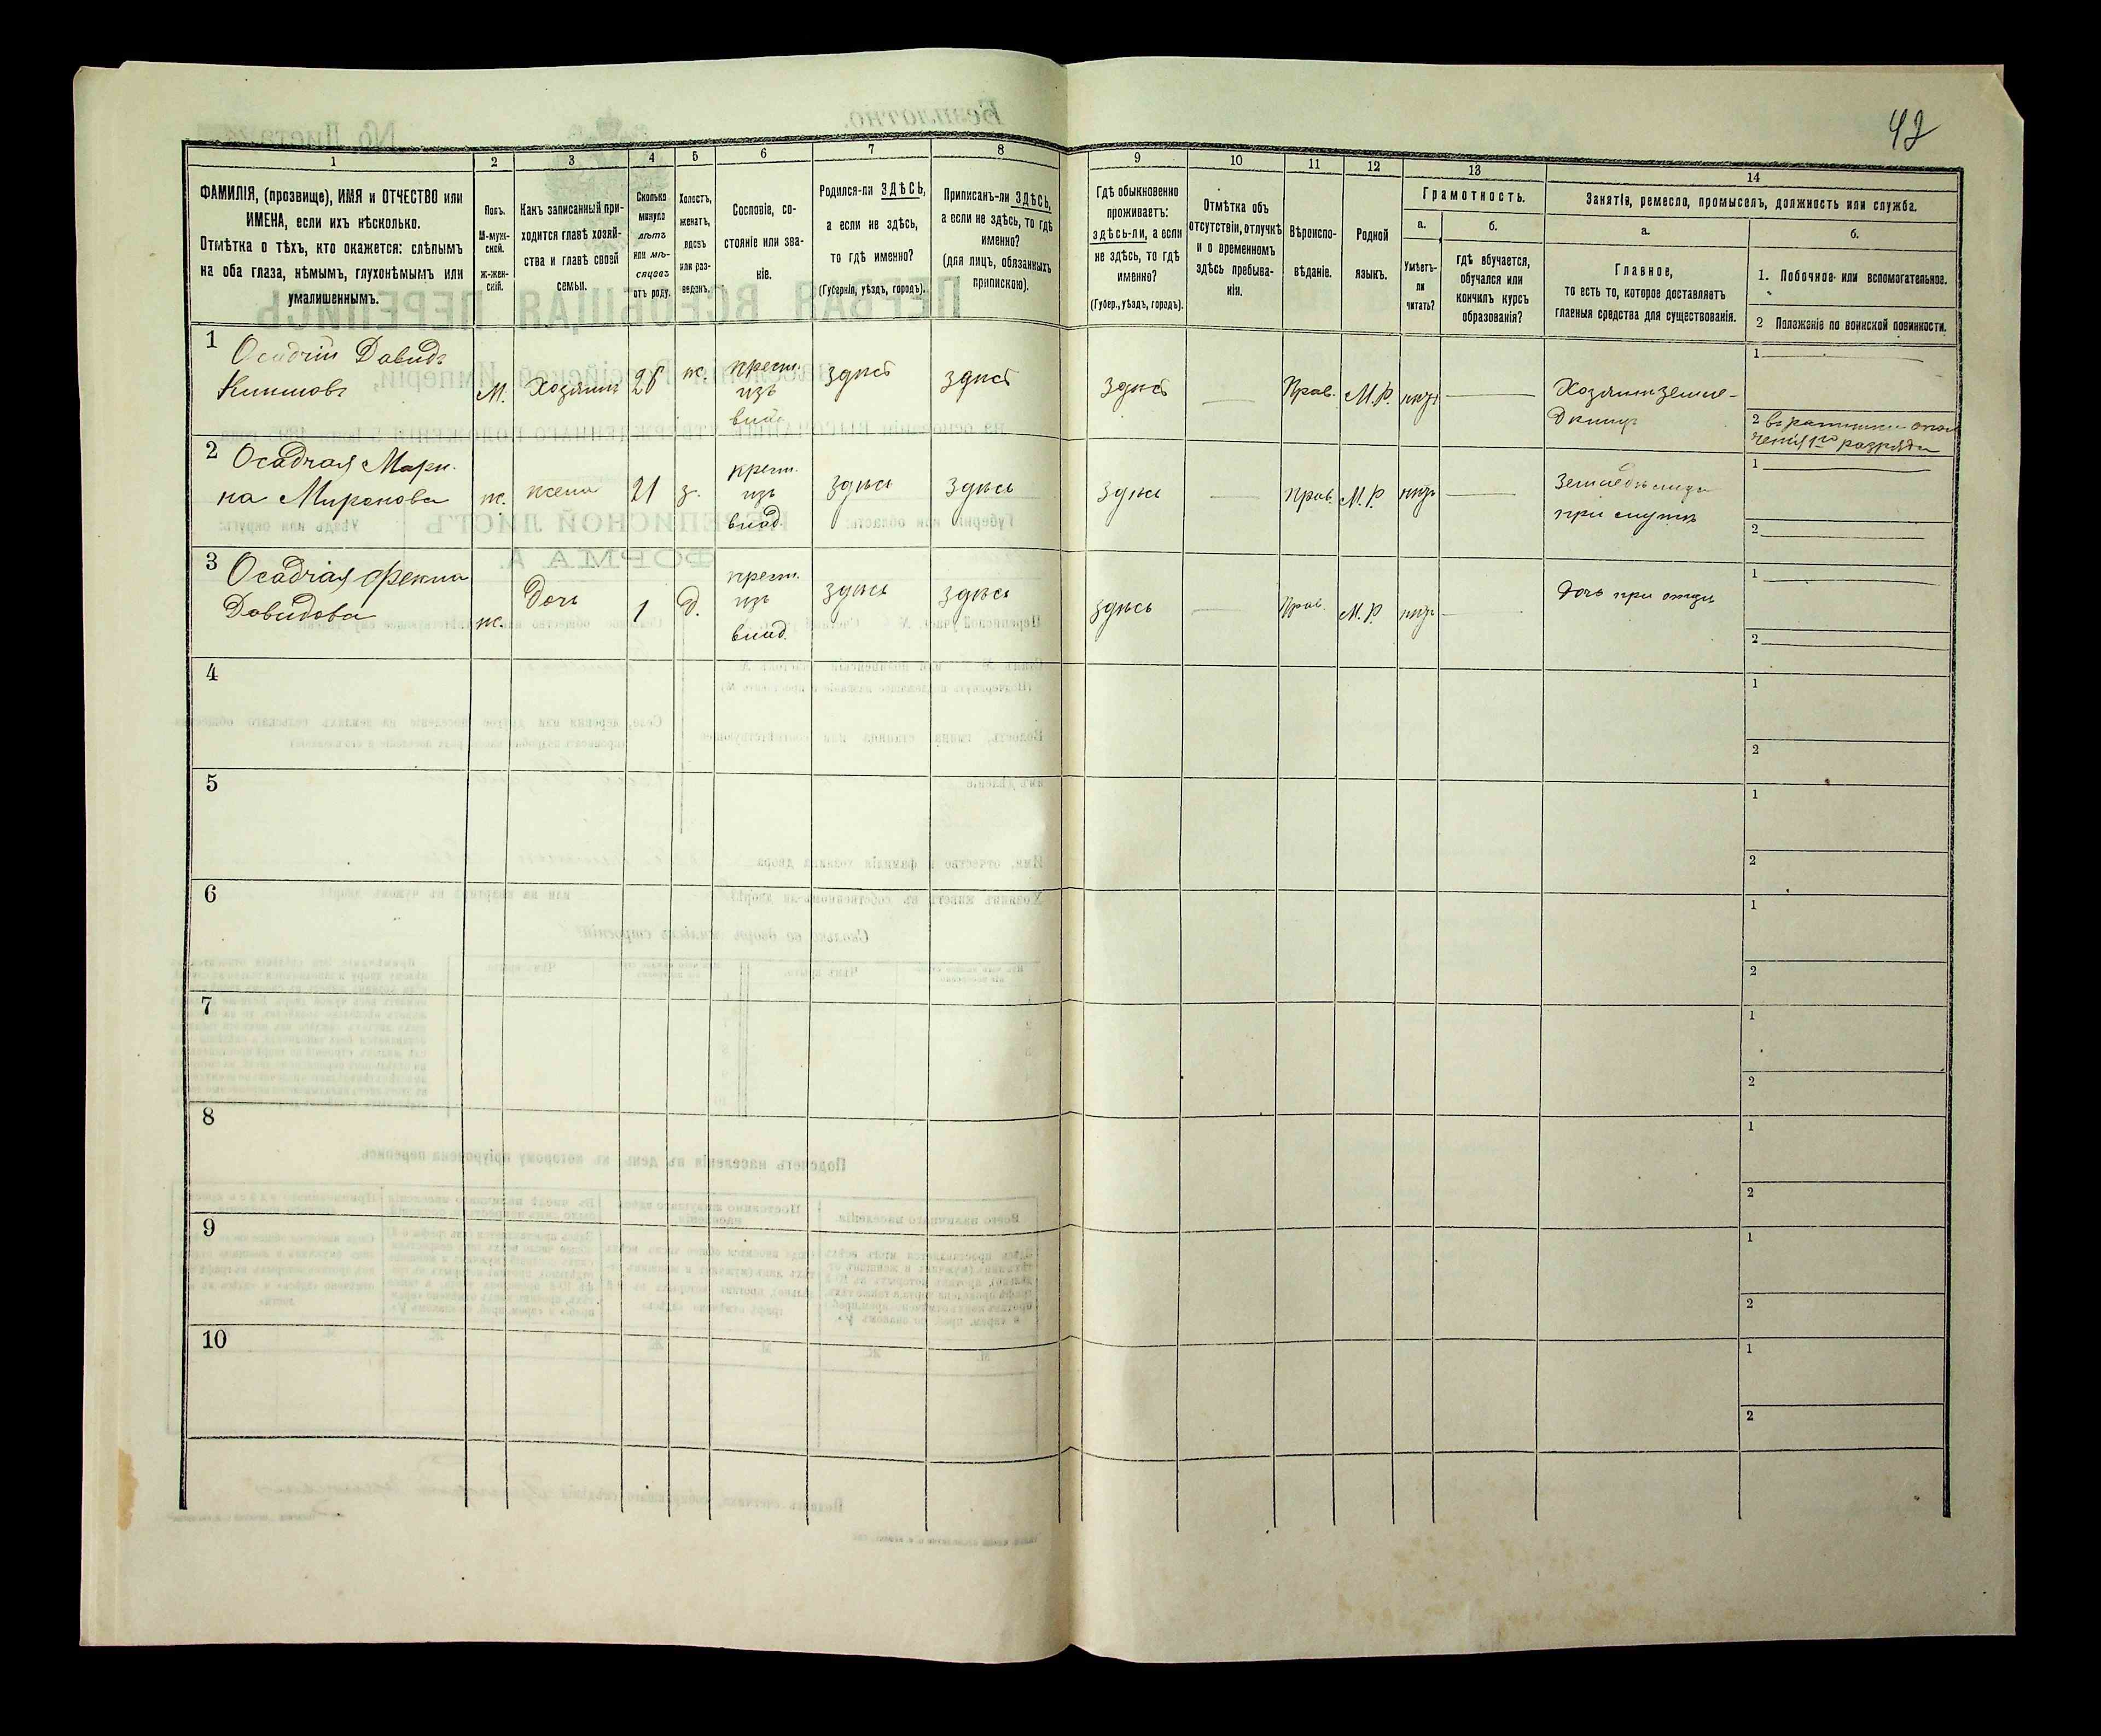 42
1
2
3
4
5
6
7
8
9
10
11
12
13
14
ФАМИЛІЯ, (прозвище), ИМЯ и ОТЧЕСТВО или
ИМЕНА, если ихъ нѣсколько.
Отмѣтка о тѣхъ, кто окажется: слѣпымъ
на оба глаза, нѣмымъ, глухонѣмымъ или
умалишеннымъ.
Полъ.
М-муж-
ской.
ж-жен-
скій.
Какъ записанный при-
ходится главѣ хозяй-
ства и главѣ своей
семьи.
Сколько
минуло
лѣтъ
или мѣ-
сяцевъ
отъ роду.
Холостъ,
женатъ,
вдовъ
или раз-
веденъ.
Сословіе, со-
стояніе или зва-
ніе.
Родился-ли ЗДѢСЬ,
а если не здѣсь,
то гдѣ именно?
(Губернія, уѣздъ, городъ).
Приписанъ-ли ЗДѢСЬ,
а если не здѣсь, то гдѣ
именно?
(для лицъ, обязанныхъ
припискою).
Гдѣ обыкновенно
проживаетъ:
здѣсь-ли, а если
не здѣсь, то гдѣ
именно?
(Губер., уѣздъ, городъ).
Отмѣтка объ
отсутствіи, отлучкѣ
и о временномъ
здѣсь пребыва-
ніи.
Вѣроиспо-
вѣданіе.
Родной
языкъ.
Грамотность.
а.
Умѣетъ-
ли
читать?
б.
гдѣ обучается,
обучался или
кончилъ курсъ
образованія?
Занятіе, ремесло, промыселъ, должность или служба.
а.
Главное,
то есть то, которое доставляетъ
главныя средства для существованія.
б.
1. Побочное или вспомогательное.
2 Положеніе по воинской повинности.
1
Осадчій Давидъ
М.
Хозяинъ
26
ж.
крест.
изъ
влад.
здѣсь
здѣсь
здѣсь
Прав.
М.Р.
нѣтъ
Хозяинъ земле-
дѣлецъ
1
2 въ ратники опол
ченія 1го разряда
2
Осадчая Мари-
на Миронова
ж.
жена
21
з.
крест.
изъ
влад.
здѣсь
здѣсь
здѣсь
Прав.
М.Р.
нѣтъ
при мужѣ
1
2
3
Осадчая Фекла
Давидова
ж.
дочь
1
д.
крест.
изъ
влад.
здѣсь
здѣсь
здѣсь
Прав.
М.Р.
нѣтъ
дочь при отцѣ
1
2
4
1
2
5
1
2
6
1
2
7
1
2
8
1
2
9
1
2
10
1
2